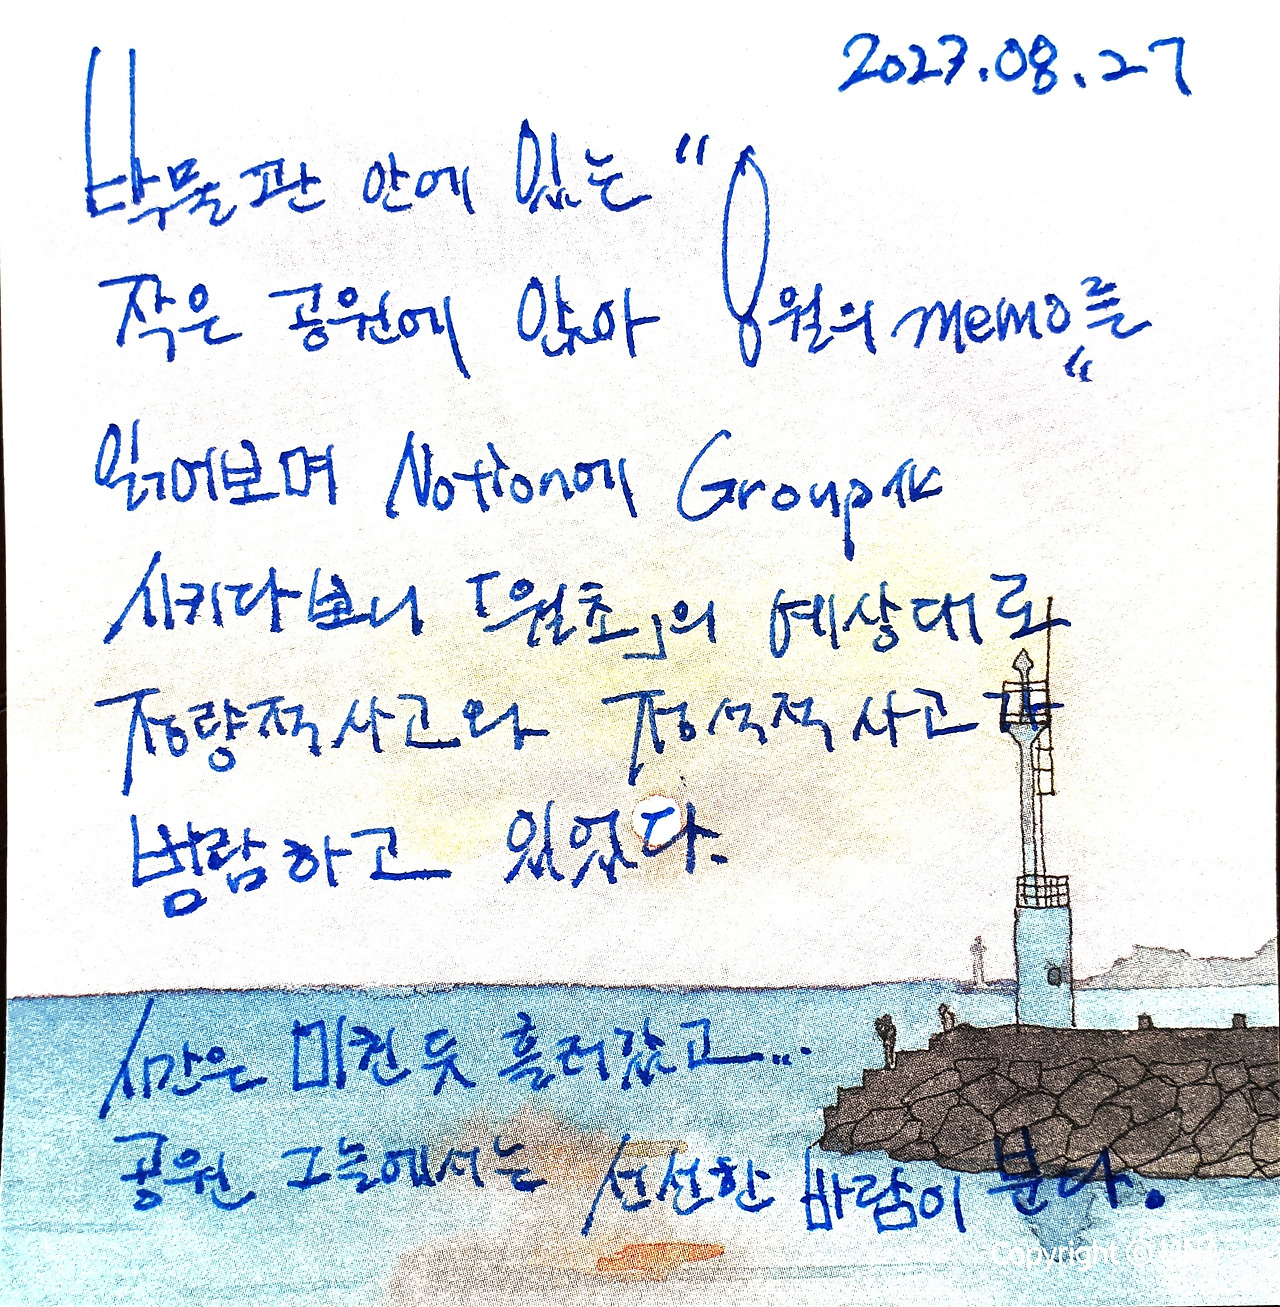 2023.08.27
박물관 안에 있는 "
작은 공원에 앉아 8월의 memo를"
읽어보며 Notion에 Group
시키다보니 「월초」의 예상대로
정량적사고와 정석적사고가
범람하고 있었다.
시간은 미친듯 흘러갔고...
공원 그늘에서는 선선한 바람이 분다.
Copyright ©